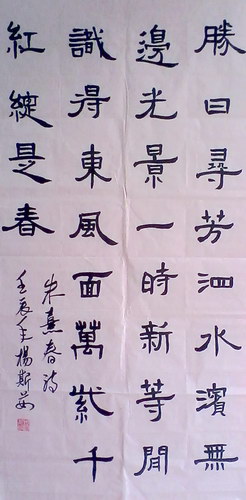 勝日尋芳泗水濱無
邊光景一時新等閒
識得東風面萬紫千
紅綻是春
朱熹春詩
壬辰年楊斯